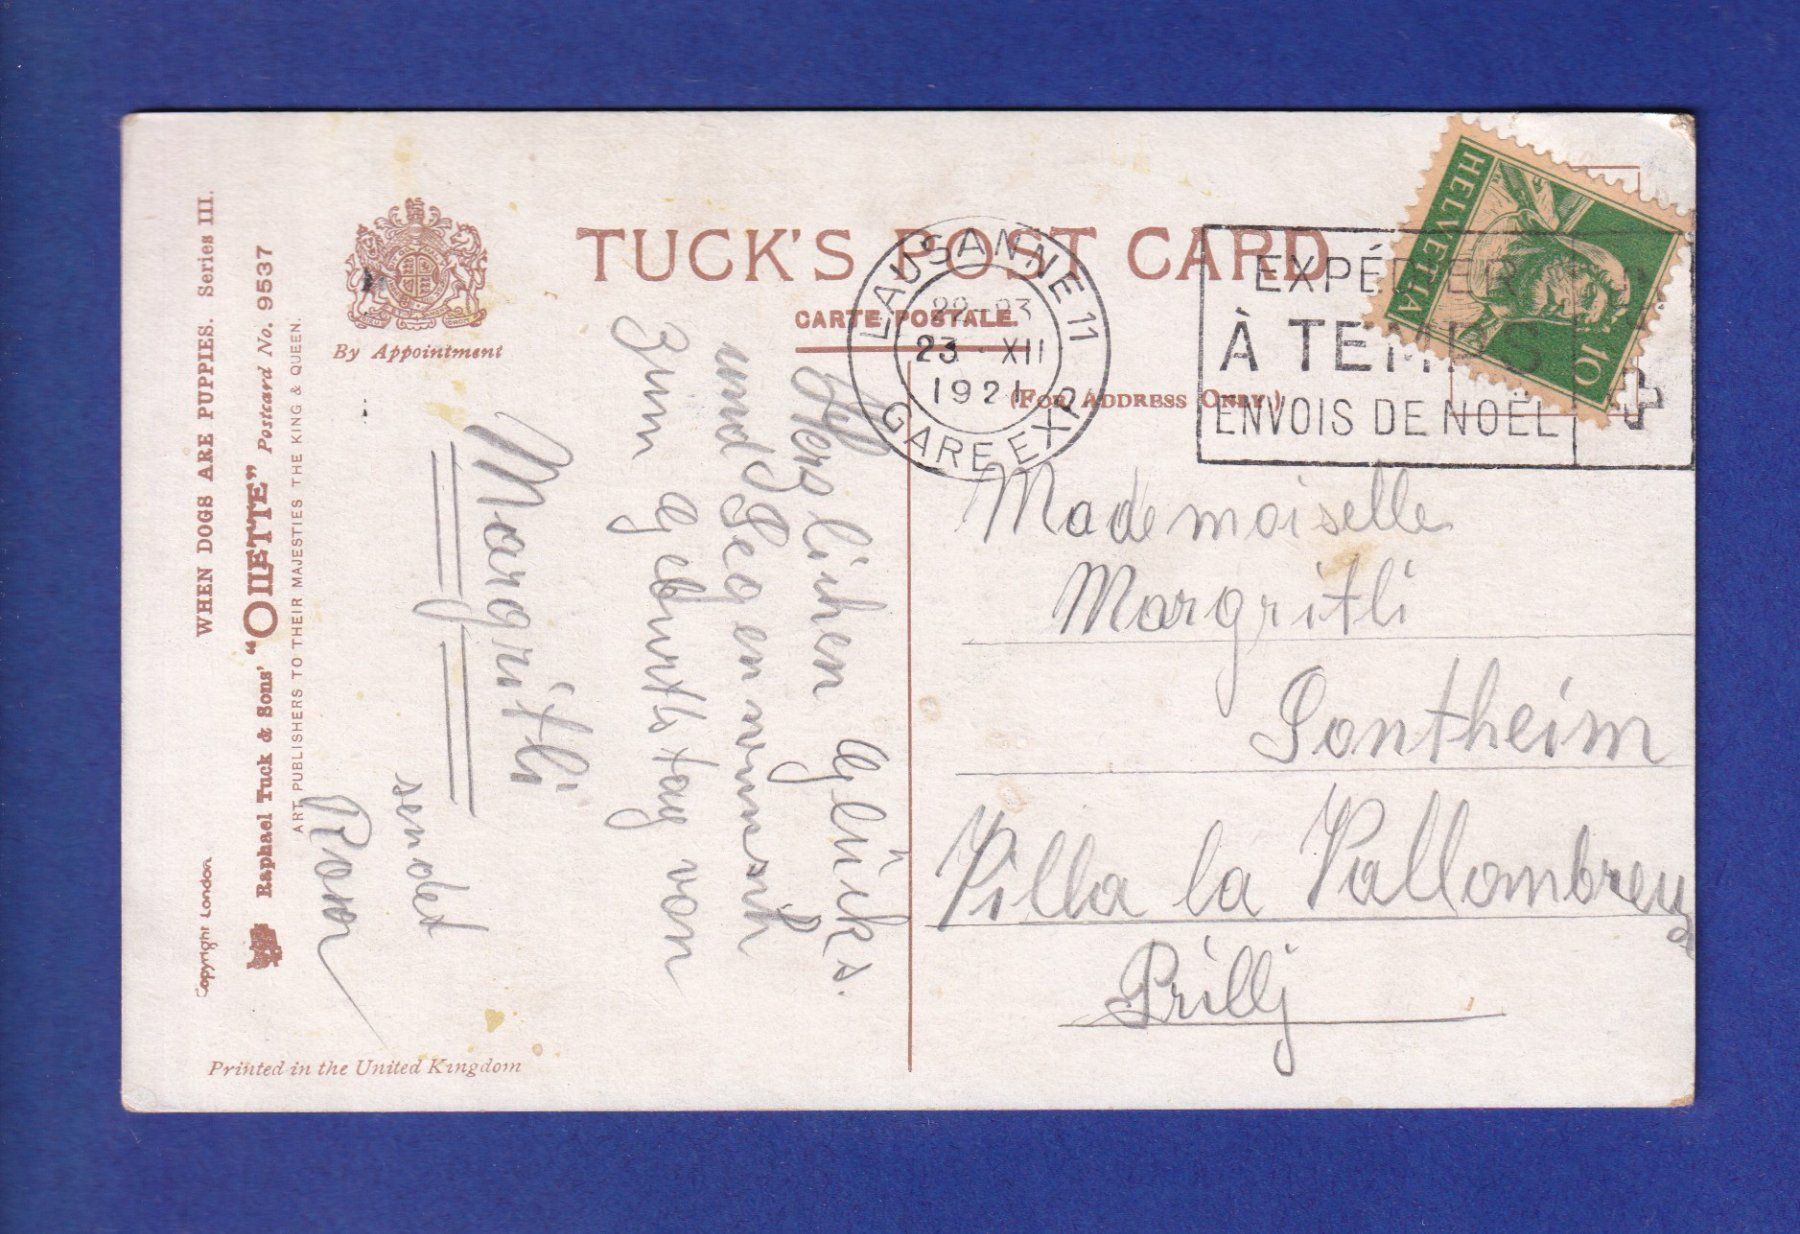 WHEN DOGS ARE PUPPIES. Series III.
Raphael Tuck & Sons' "OILETTE" Postcard No. 9537
ART PUBLISHERS TO THEIR MAJESTIES THE KING & QUEEN.
Copyright London
By Appointment
Printed in the United Kingdom
TUCK'S POST CARD
CARTE POSTALE.
(FOR ADDRESS ONLY.)
LAUSANNE 11
23 · XII
1921
GARE EXP.
EXPÉDIER
À TEMPS
ENVOIS DE NOËL
HELVETIA
10
Herzlichen Glücks.
und Segenwunsch
zum Geburtstag von
Margritli
sendet
Mademoiselle
Margritli
Sontheim
Villa la Vallombreuse
Prilly